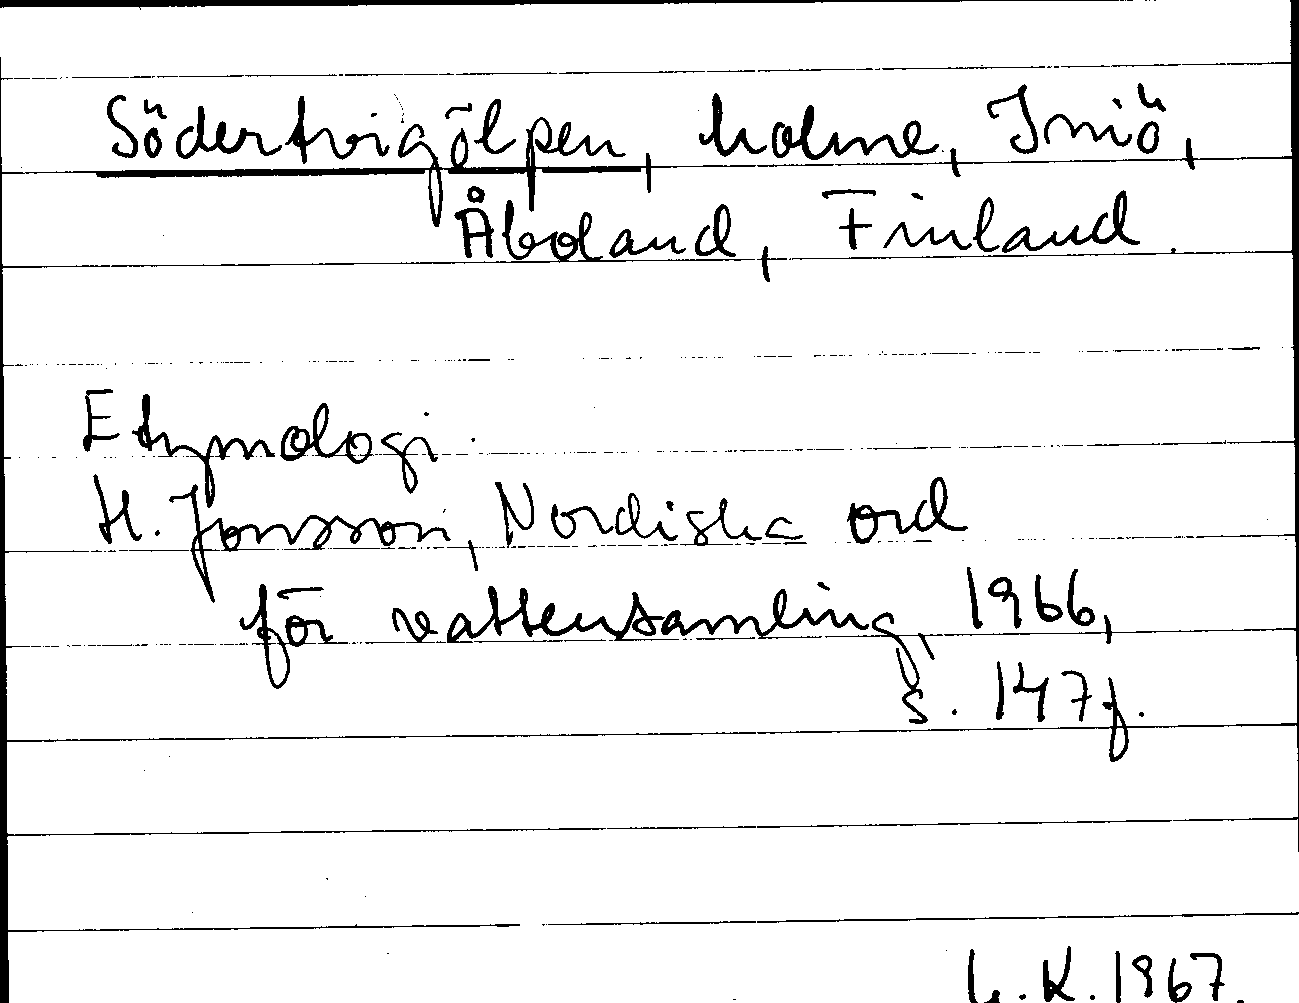 Södertvigölpen, holme, Iniö,
Åboland, Finland.
Etymologi:
H. Jonsson, Nordiska ord
för vattensamling, 1966,
s. 147f.
K. 1967.